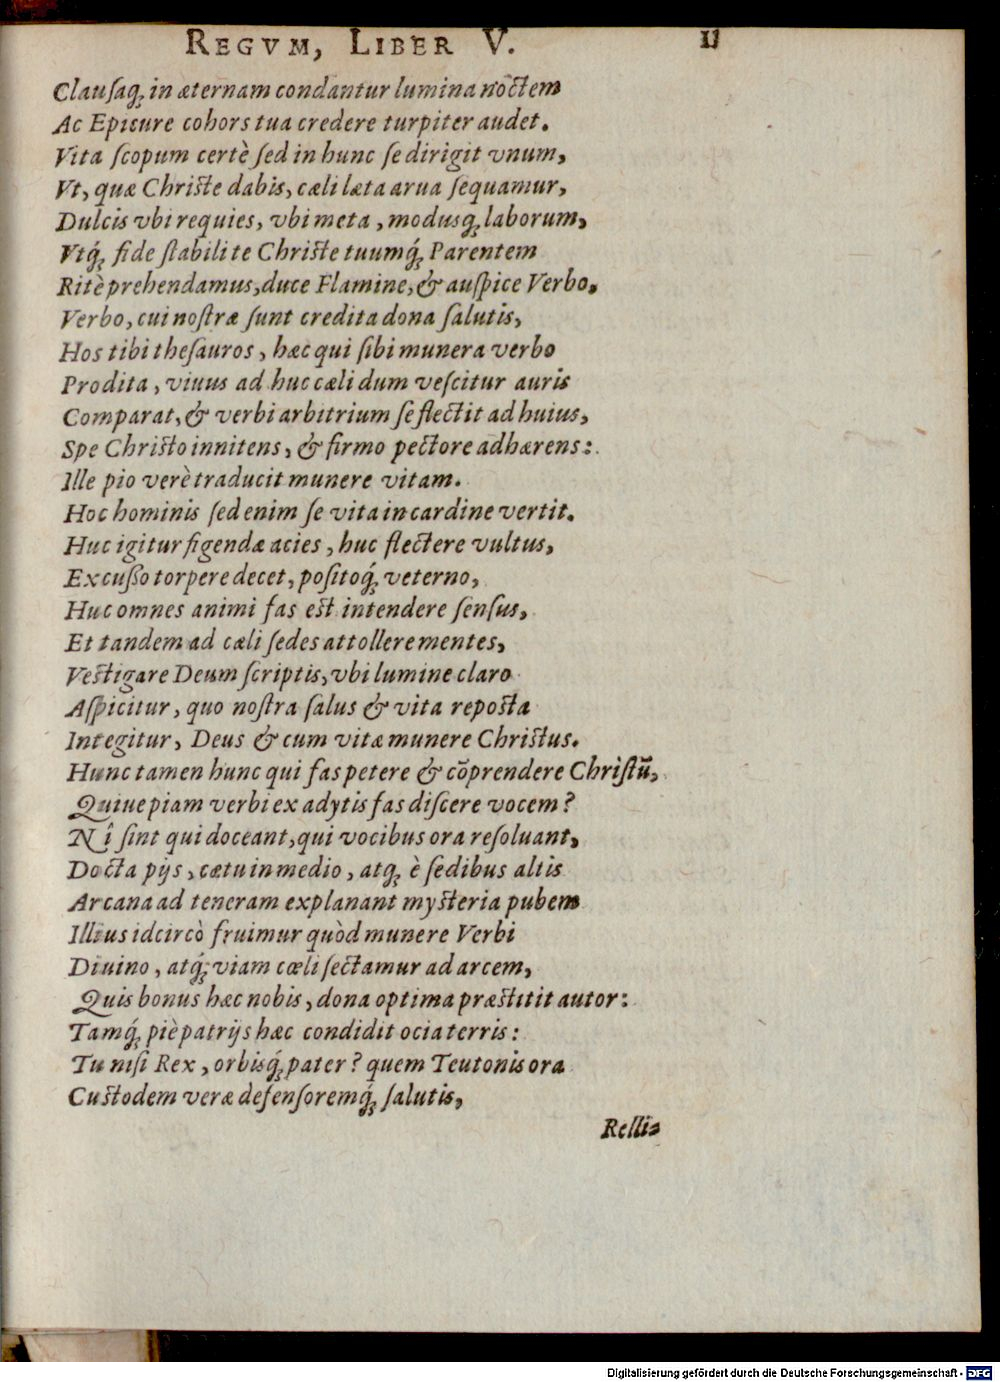 REGVM, LIBER V. 11
Clauſaq́; in æternam condantur lumina noctem
Ac Epicure cohors tua credere turpiter audet.
Vita ſcopum certè ſed in hunc ſe dirigit vnum,
Vt, quæ Chriſte dabis, cæli læta arua ſequamur,
Dulcis vbi requies, vbi meta, modusq; laborum,
Vtq́; fide ſtabili te Chriſte tuumq́; Parentem
Ritè prehendamus, duce Flamine, & auſpice Verbo.
Verbo, cui noſtræ ſunt credita dona ſalutis,
Hos tibi theſauros, hæc qui ſibi munera verbo
Prodita, viuus ad huc cæli dum veſcitur auris
Comparat, & verbi arbitrium ſe flectit ad huius,
Spe Chriſto innitens, & firmo pectore adhærens:
Ille pio verè traducit munere vitam.
Hoc hominis ſed enim ſe vita in cardine vertit.
Huc igitur figendæ acies, huc flectere vultus,
Excuſſo torpere decet, poſitoq́; veterno,
Huc omnes animi fas eſt intendere ſenſus,
Et tandem ad cæli ſedes attollere mentes,
Veſtigare Deum ſcriptis, vbi lumine claro
Aſpicitur, quo noſtra ſalus & vita repoſta
Integitur, Deus & cum vitæ munere Chriſtus.
Hunc tamen hunc qui fas petere & cõprendere Chriſtũ,
Quiue piam verbi ex adytis fas diſcere vocem?
Nî ſint qui doceant, qui vocibus ora reſoluant,
Docta pijs, cætu in medio, atq; è ſedibus altis
Arcana ad teneram explanant myſteria pubem
Illius idcircò fruimur quòd munere Verbi
Diuino, atq́; viam cœli ſectamur ad arcem,
Quis bonus hæc nobis, dona optima præſtitit autor:
Tamq́; piè patrijs hæc condidit ocia terris:
Tu niſi Rex, orbisq́; pater? quem Teutonis ora
Cuſtodem veræ defenſoremq́; ſalutis,
Relli⸗
Digitalisierung gefördert durch die Deutsche Forschungsgemeinschaft - DFG